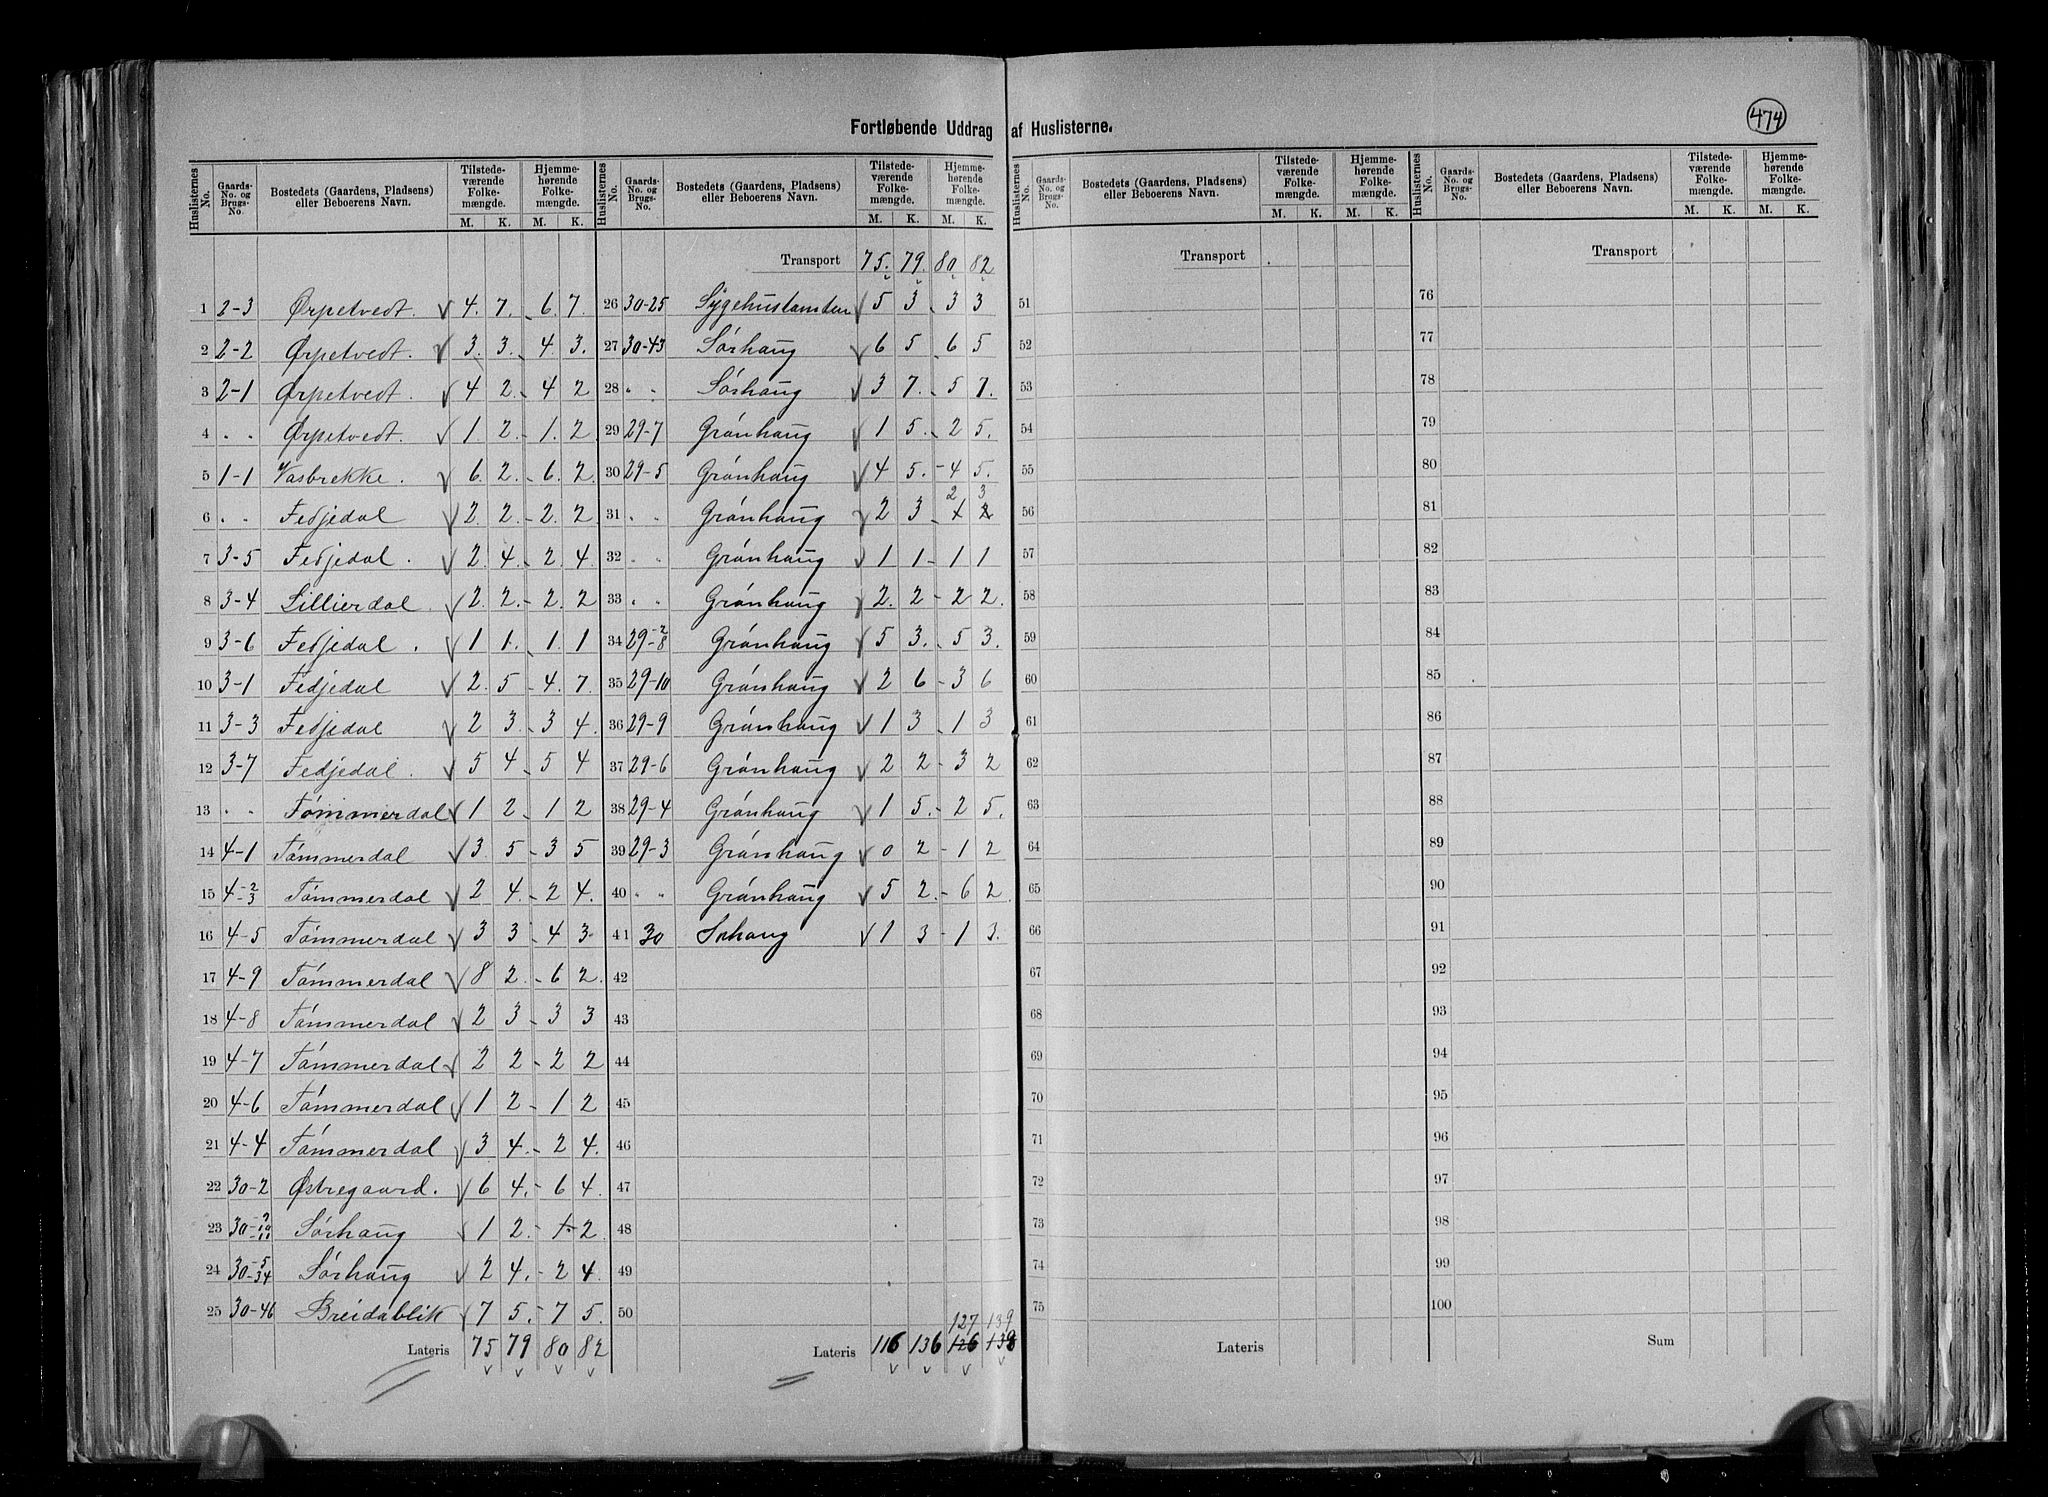 474
Fortløbende Uddrag af Huslisterne.
Huslisternes No. | Gaards-No. og Brugs-No. | Bostedets (Gaardens, Pladsens) eller Beboerens Navn. | Tilstedeværende Folkemængde. M. K. | Hjemmehørende Folkemængde. M. K.
1 2-3 Ørpetvedt. 4. 7. - 6. 7.
2 2-2 Ørpetvedt. 3. 3. - 4. 3.
3 2-1 Ørpetvedt. 4 2. - 4 2
4 " " Ørpetvedt. 1. 2. - 1. 2
5 1-1 Vasbrekke. 6. 2. - 6. 2
6 " " Fedjedal 2. 2. - 2. 2
7 3-5 Fedjedal. 2. 4. - 2. 4.
8 3-4 Lillierdal. 2. 2. - 2. 2
9 3-6 Fedjedal. 1 1. - 1. 1
10 3-1 Fedjedal 2. 5 - 4. 7.
11 3-3 Fedjedal 2 3. - 3 4.
12 3-7 Fedjedal. 5 4 - 5 4
13 " " Tómmerdal 1 2. - 1 2
14 4-1 Tómmerdal 3. 5 - 3 5
15 4-2-3 Tómmerdal 2 4. - 2 4.
16 4-5 Tómmerdal 3 3 - 4 3.
17 4-9 Tómmerdal 8 2. - 6 2.
18 4-8 Tómmerdal 2 3 - 3 3
19 4-7 Tómmerdal 2 2 - 2 2
20 4-6 Tómmerdal 1 2 - 1 2
21 4-4 Tómmerdal 3 4. - 2 4.
22 30-2 Østregaard. 6 4. - 6 4.
23 30-10-11 Sórhaug 1 2. - 1. 2.
24 30-5-34 Sórhaug 2 4. - 2 4.
25 30-46 Breidablik 7 5. - 7 5.
Lateris 75 79 80 82
Huslisternes No. | Gaards-No. og Brugs-No. | Bostedets (Gaardens, Pladsens) eller Beboerens Navn. | Tilstedeværende Folkemængde. M. K. | Hjemmehørende Folkemængde. M. K.
Transport 75. 79. 80 82
26 30-25 Sygehustomten 5 3. - 3 3
27 30-43 Sórhaug 6 5. - 6 5
28 " " Sórhaug 3 7. - 5 7.
29 29-7 Grónhaug 1 5. - 2 5.
30 29-5 Grónhaug 4 5. - 4 5.
2 3
31 " " Grónhaug 2 3 - 1 2
32 " " Grónhaug 1 1 - 1 1
33 " " Grónhaug 2. 2 - 2 2.
34 29-2-8 Grónhaug 5 3. - 5 3.
35 29-10 Grónhaug 2 6 - 3 6
36 29-9 Grónhaug 1 3 - 1 3
37 29-6 Grónhaug 2 2 - 3 2
38 29-4 Grónhaug 1 5. - 2 5.
39 29-3 Grónhaug 0 2 - 1 2
40 " " Grónhaug 5 2. - 6 2
41 30 Sorhaug 1 3 - 1 3.
42
43
44
45
46
47
48
49
50
127 139
Lateris 116 136 126 138
Huslisternes No. | Gaards-No. og Brugs-No. | Bostedets (Gaardens, Pladsens) eller Beboerens Navn. | Tilstedeværende Folkemængde. M. K. | Hjemmehørende Folkemængde. M. K.
Transport
51
52
53
54
55
56
57
58
59
60
61
62
63
64
65
66
67
68
69
70
71
72
73
74
75
Lateris
Huslisternes No. | Gaards-No. og Brugs-No. | Bostedets (Gaardens, Pladsens) eller Beboerens Navn. | Tilstedeværende Folkemængde. M. K. | Hjemmehørende Folkemængde. M. K.
Transport
76
77
78
79
80
81
82
83
84
85
86
87
88
89
90
91
92
93
94
95
96
97
98
99
100
Sum